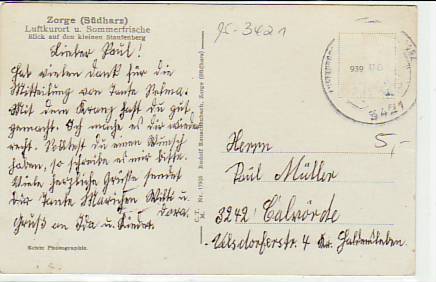 Zorge (Südharz)
Luftkurort u. Sommerfrische
Blick auf den kleinen Staufenberg
Lieber Paul!
Hab vielen Dank für die
Mitteilung von Tante Selma.
Mit dem Kranz hast du gut
gemacht. Ich mache es dir wieder
recht. Solltest du einen Wunsch
haben, so schreibe es mir bitte.
Viele herzliche Grüße sendet
dir Tante Mariechen u.
Dora.
Gruß an Ida u. Kinder.
Echte Photographie
Zorge (Südharz)
C. T. Nr. 17935
M.
gc-3421
939
3421
5,-
Herrn
Paul Müller
3242 Calvörde
Velsdorferstr. 4 Kr. Haldensleben